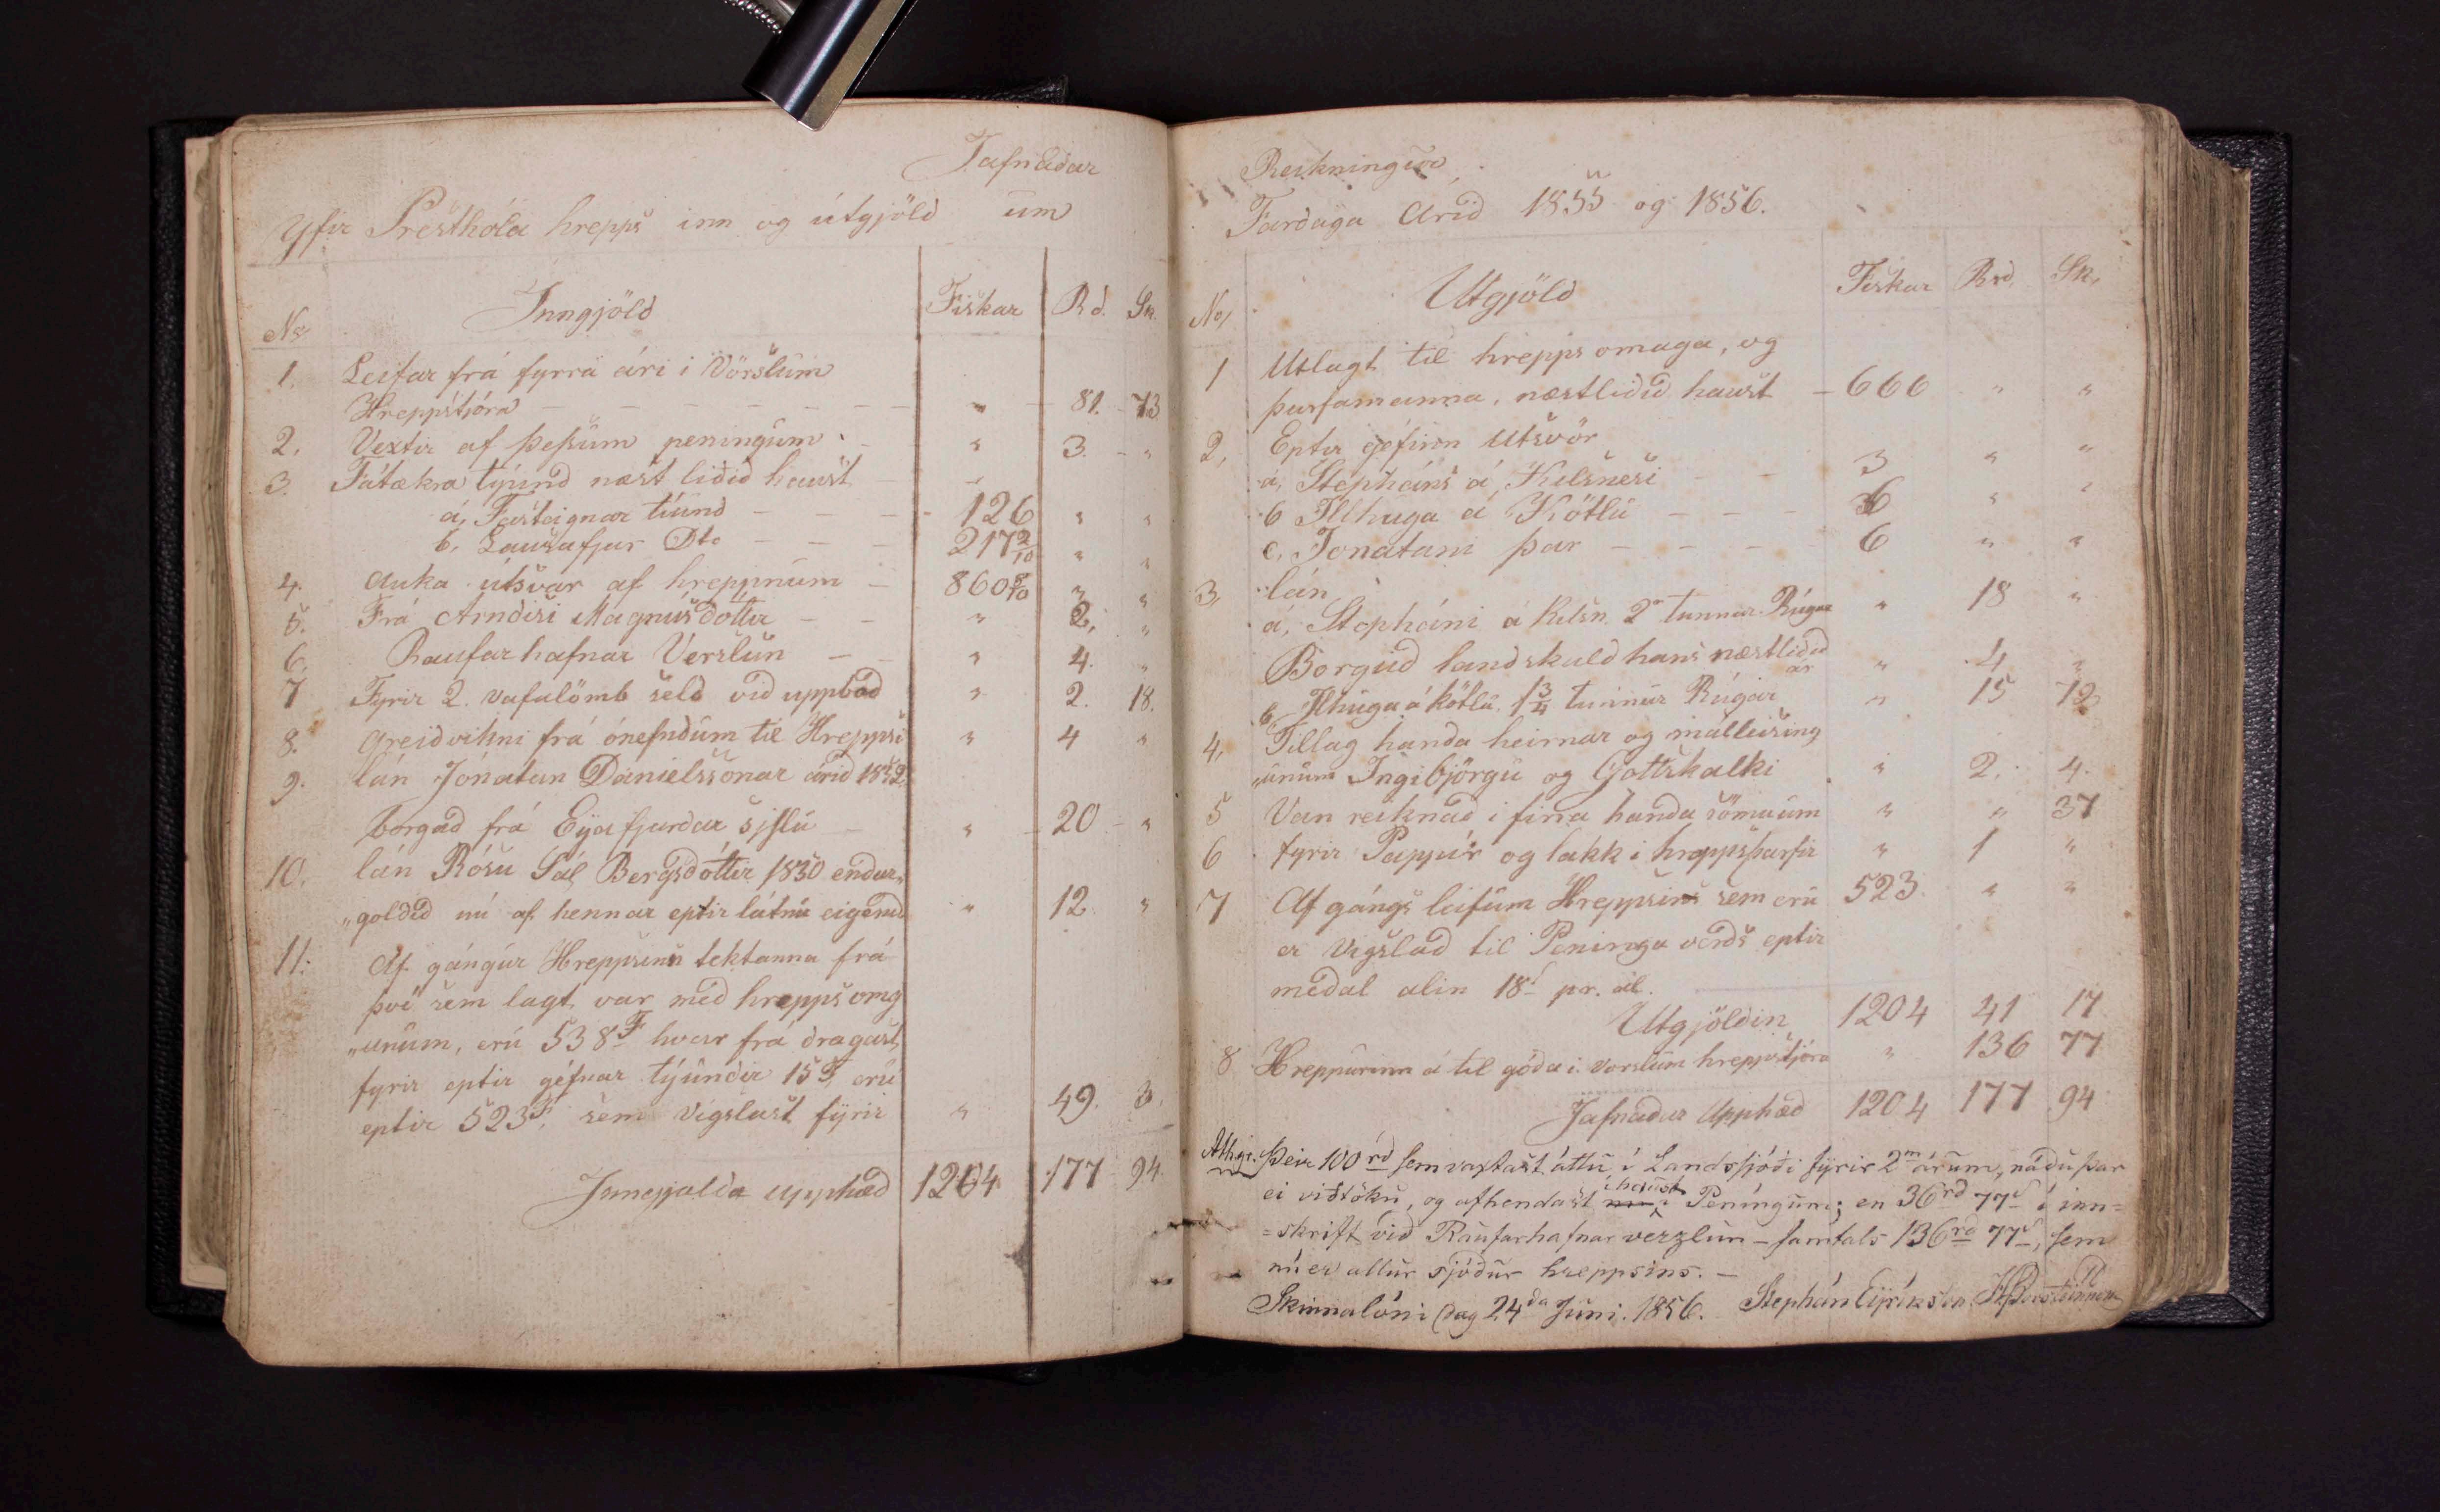 Jafnaðar
Yfir Presthóla hrepps inn og útgjöld um
No Inngjöld Fiskar Rd. Sk.
1. Leifar frá fyrra ári i Vörslum
Hreppstjóra – – – – – „ 81. 73
2. Vextir af þessum peningum „ 3. „
3. Fátækra týund næst liðið haust
a, Fasteignar tiund – – – 126 „ „
b, Lausafjar Dto – – – 217 2/10 „ „
4. Auka útsvar af hreppnum – 860 8/10 „ „
5. Frá Arndisi Magnusdóttir – – „ 2, „
6. Raufarhafnar Verslun – – „ 4. „
7 Fyrir 2. vafalömb seld við uppboð „ 2. 18.
8. Greiðvikni frá ónefndum til Hreppsi „ 4 „
9. lán Jónatan Danielssonar árið 1852
borgað frá Eyafjarðar syslu – „ 20 „
10. lán Rósu Sál Bergsdóttir 1850 endur„
„goldið nú af hennar eptir látnu eigend „ 12 „
11. Af gángur Hreppsins tektanna frá
því sem lagt var með hrepps omg
„unum, eru 538 F hvar frá dragast
fyrir eptir géfnar týundir 15 F, eru
eptir 523 F, sem vigslast fyrir „ 49. 3.
Inngjalda upphæð 1204 177 94
Reikningur
Fardaga Arið 1855 og 1856.
No, Utgjöld Fiskar Rd. Sk.
1 Utlagt til hrepps omaga, og
þurfamanna, næstliðið haust – 666 „ „
2, Eptir géfinn Utsvör
a, Stepháns á Kilsnesi – – 3 „ „
b Illhuga á Kötlu – – – 6 „ „
c, Jonatani þar – – – – 6 „ „
3, lán
a, Stepháni á Kilsn. 2r tunnur Rúgar „ 18 „
Borguð landskuld hans næstliðið
ár „ 4 „
b, Illhuga á Kötlu 1 3/4 tunnur Rúgar „ 15 72
4, Tillag handa heirnar og málleising
„unum Ingibjörgu og Gottskalki „ 2. 4.
5 Van reiknað i firra handa sömu um „ „ 37
6 fyrir Pappír og lakk i hreppsþarfir „ 1 „
7 Af gángs leifum Hreppsins sem eru 523 „ „
er vigslað til Peninga verðs eptir
meðal alin 18 s pr. al.
Utgjöldin 1204 41 17
8 Hreppurinn á til góða i vorslum hreppstjóra „ 136 77
Jafnaðar Upphæð 1204 177 94
Athgr. Þeir 100 rd sem vaxtast áttu í Landssjóði fyrir 2m árum, náðu þar
ei viðtöku, og afhendast í haust Peníngum; en 36 rd 77 s í inn=
=skrift við Raufarhafnar verzlun – samtals 136 rd 77 s, sem
nú er allur sjóður hreppsins. –
Skinnalóni Dag 24da Júni. 1856. Stephán Eyríksson